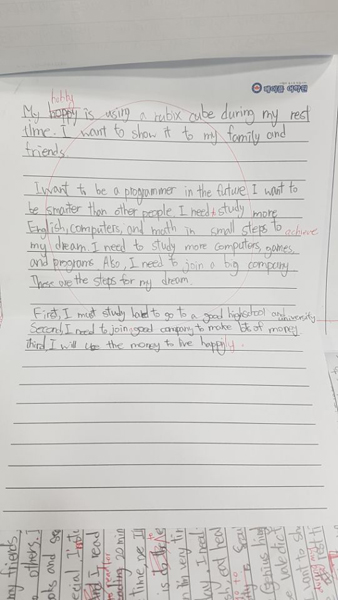 에이플 어학원
hobby
My happy is using a rubix cube during my rest
time. I want to show it to my family and
friends.
I want to be a progammer in the future. I want to
be smarter than other people. I need to study more
English, computers, and math in small steps to achieve
my dream. I need to study more computers, games,
and programs. Also, I need to join a big company.
These are the steps for my dream.
First, I must study hard to go to a good highschool and university
Second, I need to join good company to make lot of money
third, I will use the money to live happily.
my friends.
others. I
and I read
reading 20 min